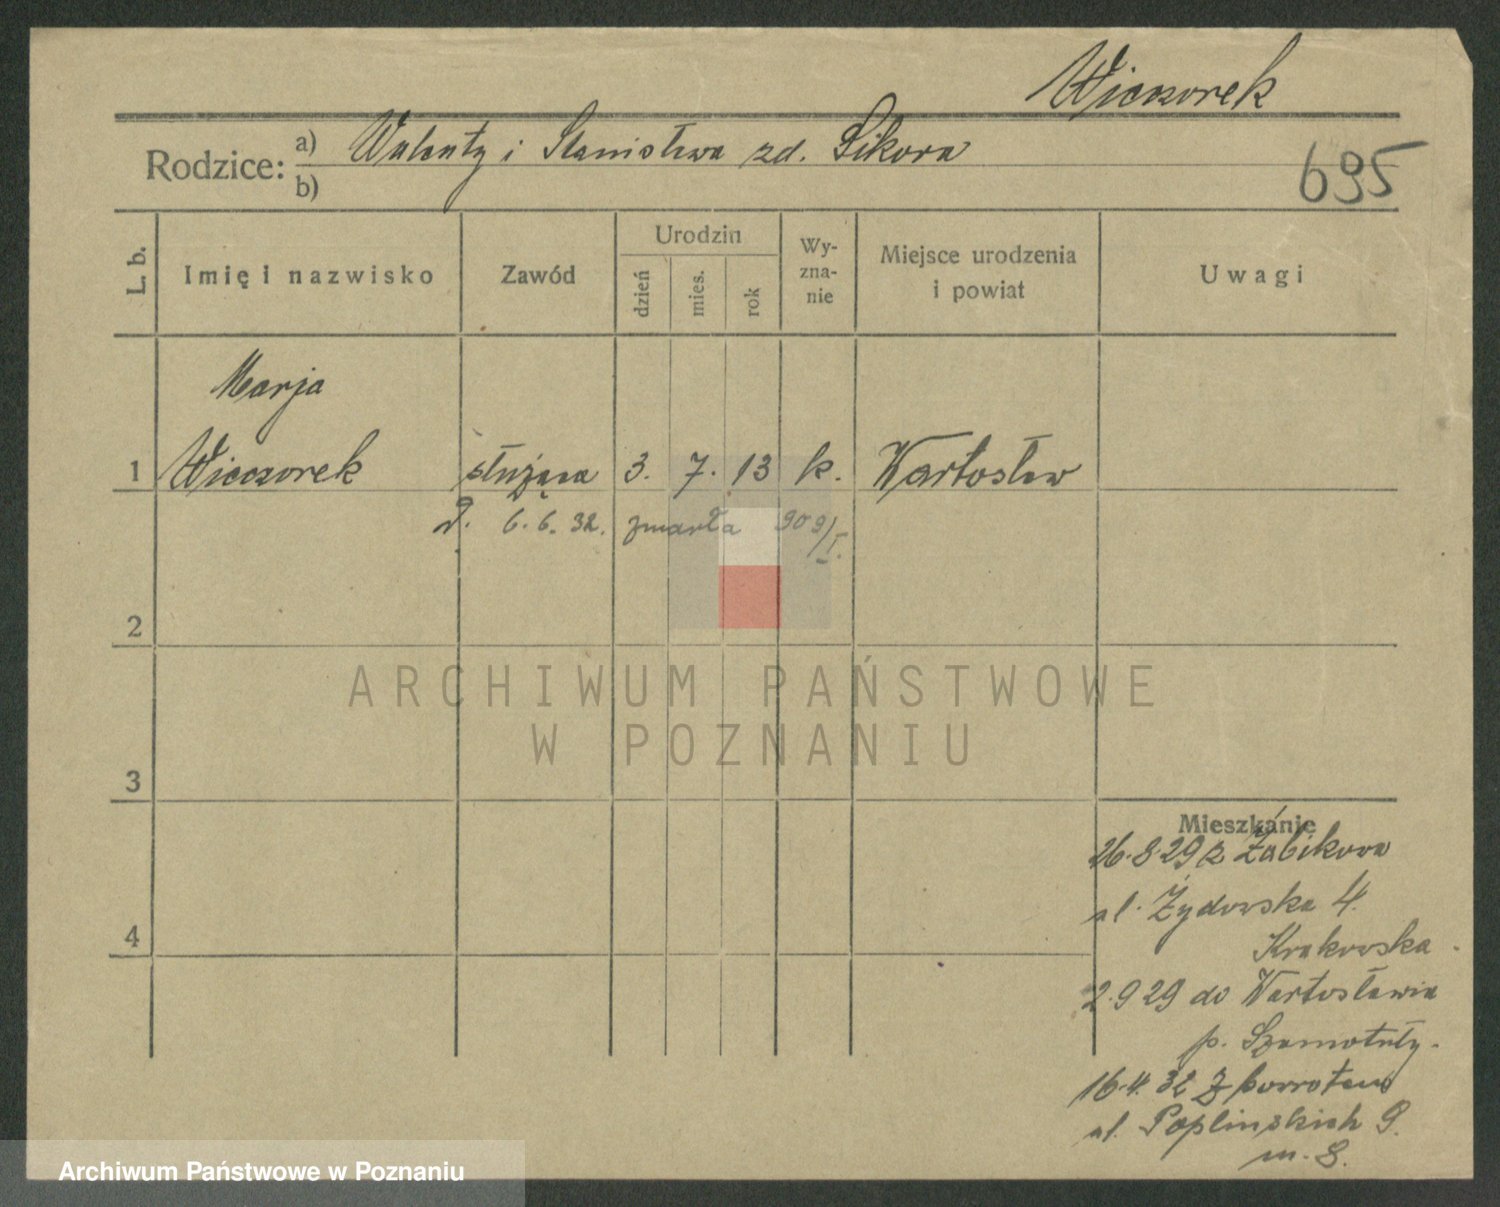 Wieczorek
Rodzice: a) Walenty i Stanisława zd. Sikora
b)
695
L. b.
Imię i nazwisko
Zawód
Urodzin
dzień
mies.
rok
Wy-
zna-
nie
Miejsce urodzenia
i powiat
Uwagi
Marja
1 Wieczorek służąca 3. 7. 13 k. Wartosław
6.6.32. zmarła
2
3
4
ARCHIWUM PAŃSTWOWE
W POZNANIU
Mieszkanie
26.8.29 z Żabikowa
ul. Żydowska 4.
Krakowska
2.9.29 do Wartosławia
p. Szamotuły.
16.4.32 z powrotem
ul. Poplińskich 9.
m. 8.
Archiwum Państwowe w Poznaniu